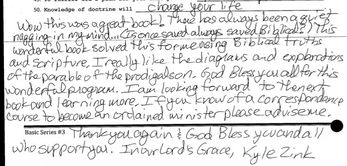 50. Knowledge of doctrine will change your life
Wow this was a great book! There has always been a
nagging in my mind... Is once saved always saved Biblical? This
wonderful book solved this for me using Biblical truths
and scripture, I really like the diagrams and explorations
of the parable of the prodigal son. God Bless you all for this
wonderful program. I am looking forward to the next
book and learning more. If you know of a correspondence
course to become an ordained minister please advise me.
Basic Series #3 Thank you again & God Bless you and all
who support you. In our Lord's Grace, Kyle Zink